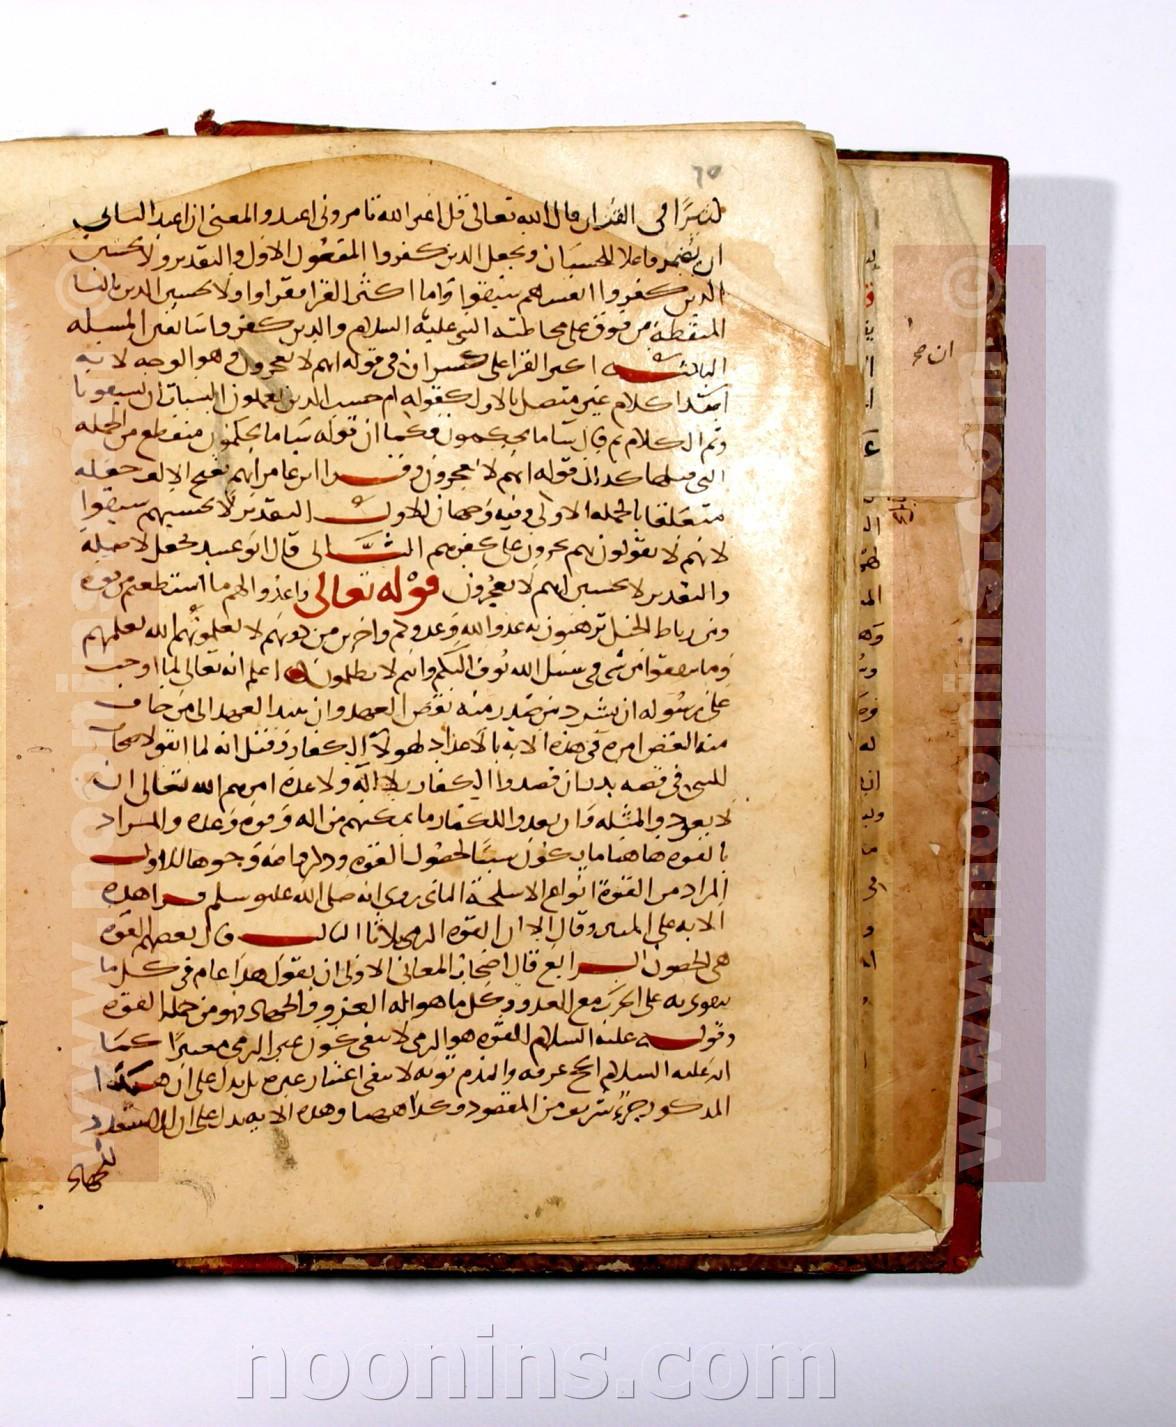 ٦٥
كثيرا في القران قال الله تعالى قل افغير الله تامروني اعبد والمعنى ان اعبد الثاني
ان نضمر فاعلا للحسبان ونجعل الذين كفروا المفعول الاول والتقدير ولا يحسبن
الذين كفروا انفسهم سبقوا واما اكثر القرا فقراوا ولا تحسبن الذين بالتا
المنقطة من فوق على مخاطبة النبي عليه السلام والذين كفروا سابقين المسله
الثالثه اكثر القرا على كسر ان في قوله انهم لا يعجزون وهو الوجه لانه
ابتدا كلام غير متصل بالاول كقوله ام حسب الذين يعملون السيات ان يسبقونا
وتم الكلام ثم قال سا ما يحكمون فكما ان قوله سا ما يحكمون منقطع من الجمله
التي قبلها كذلك قوله انهم لا يعجزون وقرا ابن عامر انهم بفتح الالف جعله
متعلقا بالجمله الاولى وفيه وجهان الاول التقدير لا تحسبنهم سبقوا
لانهم لا يفوتون فهم يجزون على كفرهم الثاني قال ابو عبيد يجعل لا صلة
والتقدير لا تحسبن انهم يعجزون قوله تعالى واعدوا لهم ما استطعتم من قوة
ومن رباط الخيل ترهبون به عدو الله وعدوكم واخرين من دونهم لا تعلمونهم الله يعلمهم
وما تنفقوا من شي في سبيل الله يوف اليكم وانتم لا تظلمون اعلم انه تعالى لما اوجب
على رسوله ان يشرد من صدر منه نقض العهد وان ينبذ العهد الى من خاف
منه النقض امره في هذه الاية بالاعداد لهولا الكفار وقيل انه لما اتفق لاصحاب
النبي في قصه بدر ان قصدوا الكفار بلا الة ولا عدة امرهم الله تعالى ان
لا يعودوا لمثله وان يعدوا للكفار ما يمكنهم من اله وقوه وعده والمراد
بالقوه هاهنا ما يكون سببا لحصول القوه وذكروا فيه وجوها الاول
المراد من القوة انواع الاسلحة الثاني روي انه صلى الله عليه وسلم قرا هذه
الايه على المنبر وقال الا ان القوه الرمي ثلاثا الثالث قال بعضهم القوة
هي الحصون الرابع قال اصحاب المعاني الاولى ان يقول هذا عام في كل ما
يتقوى به على حرب العدو وكل ما هو اله الغزو والجهاد فهو من جمله القوه
وقوله عليه السلام القوه هو الرمي لا ينفي كون غير الرمي معتبرا كما
انه عليه السلام الحج عرفه والندم توبه لا ينفي اعتبار غيره بل يدل على ان هذا
المذكور جزء شريف من المقصود فكذا ههنا وهذه الايه تدل على ان الاستعداد
للجهاد
ان
noonins.com